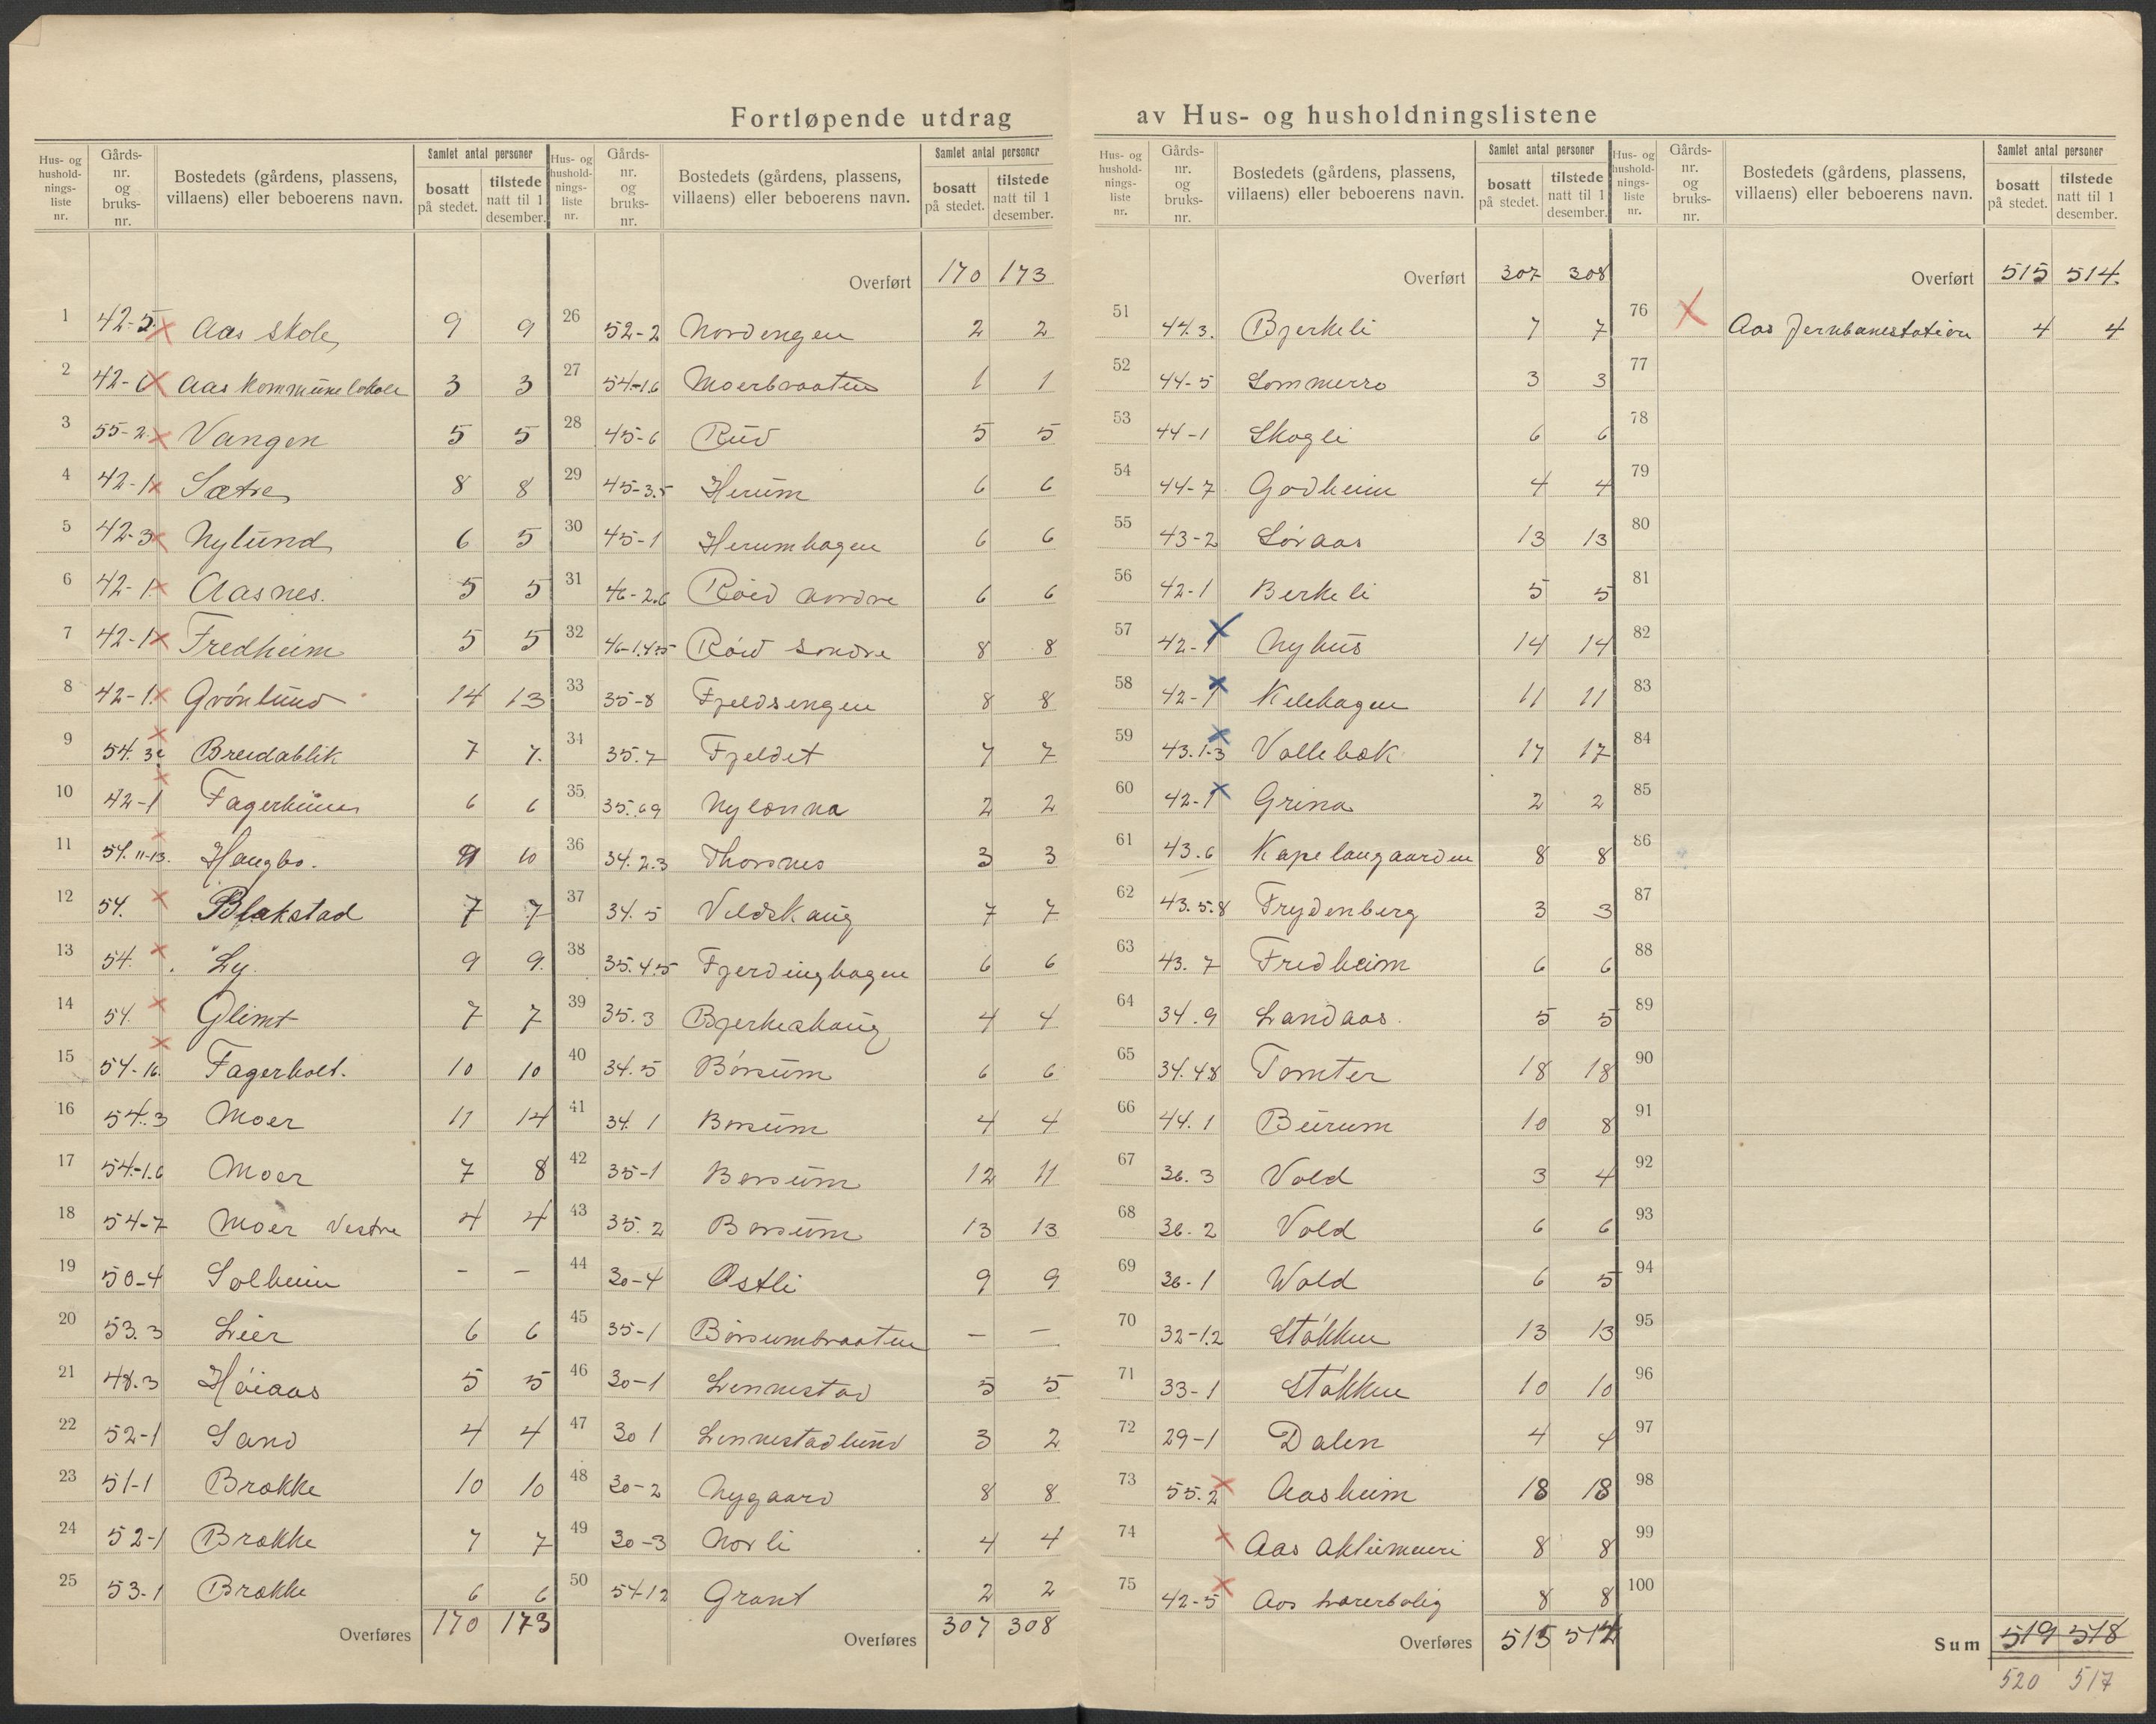 Fortløpende utdrag av Hus- og husholdningslistene
Hus- og husholdnings-liste nr. Gårds-nr. og bruks-nr. Bostedets (gårdens, plassens, villaens) eller beboerens navn. Samlet antal personer bosatt på stedet. tilstede natt til 1 desember.
1 42-5 Aas skole 9 9
2 42- Aas kommunelokale 3 3
3 55-2 Vangen 5 5
4 42-1 Sætre 8 8
5 42-3 Nylund 6 5
6 42-1 Aasnes. 5 5
7 42-1 Fredheim 5 5
8 42-1 Grönlund 14 13
9 54. Breidablik 7 7.
10 42-1 Fagerheim 6 6
11 54. 11-13. Haugbo. 10
12 54. Blakstad 7 7
13 54. Ly. 9 9.
14 54. Glimt 7 7
15 54-16. Fagerholt. 10 10
16 54.3 Moer 11 14
17 54-1.6 Moer 7 8
18 54-7 Moer Vestre 4 4
19 50-4 Solheim - -
20 53.3 Lier 6 6
21 48.3 Höiaas 5 5
22 52-1 Sand 4 4
23 51-1 Brække 10 10
24 52-1 Brække 7 7
25 53-1 Brække 6 6
Overføres 170 173
Hus- og husholdnings-liste nr. Gårds-nr. og bruks-nr. Bostedets (gårdens, plassens, villaens) eller beboerens navn. Samlet antal personer bosatt på stedet. tilstede natt til 1 desember.
Overført 170 173
26 52-2 Nordengen 2 2
27 54-1.6 Moerbraaten 1 1
28 45-6 Rud 5 5
29 45-3.5 Herum 6 6
30 45-1 Herumhagen 6 6
31 46-2.6 Röed nordre 6 6
32 46-1.4.5 Röed söndre 8 8
33 35-8 Fjeldsengen 8 8
34 35.7 Fjeldet 7 7
35 35.69 Nylænna 2 2
36 34.2.3 Thorsnes 3 3
37 34.5 Veldskaug 7 7
38 35.4.5 Fjerdinghagen 6 6
39 35.3 Bjerkeskaug 4 4
40 34.5 Börsum 6 6
41 34.1 Borsum 4 4
42 35-1 Borsum 12 11
43 35.2 Borsum 13 13
44 30-4 Østli 9 9
45 35-1 Börsumbraaten - -
46 30-1 Lennestad 5 5
47 30 1 Lennestadlund 3 2
48 30-2 Nygaard 8 8
49 30-3 Norli 4 4
50 5412 Grant 2 2
Overføres 307 308
Hus- og husholdnings-liste nr. Gårds-nr. og bruks-nr. Bostedets (gårdens, plassens, villaens) eller beboerens navn. Samlet antal personer bosatt på stedet. tilstede natt til 1 desember.
Overført 307 308
51 44.3. Bjerkeli 7 7
52 44-5 Sommerro 3 3
53 44-1 Skogli 6 6
54 44-7 Godheim 4 4
55 43-2 Söraas 13 13
56 42-1 Berkeli 5 5
57 42-1 Nyhus 14 14
58 42-1 Kilehagen 11 11
59 43.1-3 Vollebæk 17 17
60 42-1 Grina 2 2
61 43.6 Kapelangaarden 8 8
62 43.5.8 Frydenberg 3 3
63 43.7 Fredheim 6 6
64 34.9 Landaas. 5 5
65 34.48 Tomter 18 18
66 44.1 Burum 10 8
67 36.3 Vold 3 4
68 36.2 Vold 6 6
69 36-1 Wold 6 5
70 32-1.2 Stökken 13 13
71 33-1 Stökken 10 10
72 29-1 Dalen 4 4
73 55.2 Aasheim 18 18
74 Aas Aktiemeieri 8 8
75 42-5 Aas lærerbolig 8 8
Overføres 515 514
Hus- og husholdnings-liste nr. Gårds-nr. og bruks-nr. Bostedets (gårdens, plassens, villaens) eller beboerens navn. Samlet antal personer bosatt på stedet. tilstede natt til 1 desember.
Overført 515 514.
76 Aas Jernbanestation 4 4
77
78
79
80
81
82
83
84
85
86
87
88
89
90
91
92
93
94
95
96
97
98
99
100
Sum 519 518
520 517